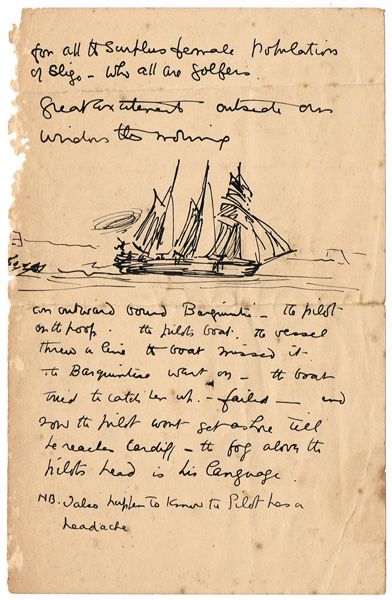 for all the surplus female population
of Sligo - who all are golfers.
Great excitement outside our
windows this morning
an outward bound Barquentine - the pilot
on the poop. the pilots boat. the vessel
threw a line the boat missed it
the Barquentine went on - the boat
tried to catch her up. - failed - and
now the pilot wont get ashore till
he reaches Cardiff - the fog above the
pilots head is his language.
NB. I also happen to know the Pilot has a
headache